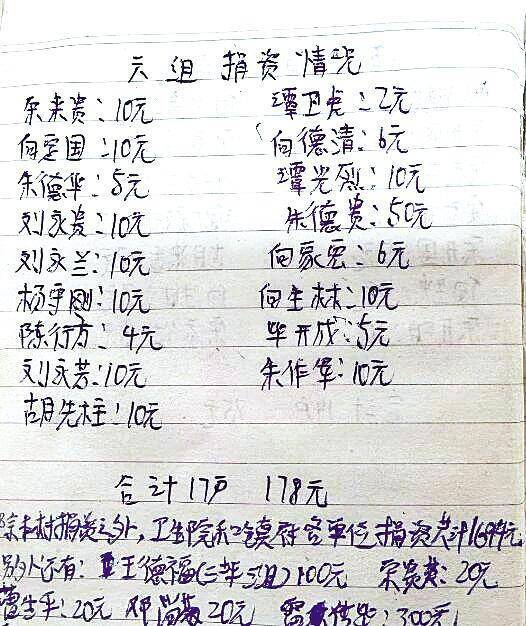 六组 捐资情况
余来贵:10元 谭卫虎:2元
向定国:10元 向德清:6元
朱德华:5元 谭光烈:10元
刘永贵:10元 朱德贵:50元
刘永兰:10元 向家宏:6元
杨宇刚:10元 向生林:10元
陈行方:4元 毕开成:5元
刘永芳:10元 朱作军:10元
胡先柱:10元
合计17户 178元
除本村捐资之外,卫生院和镇府各单位捐资共计1694元
另外还有: 王德福(三组)100元 20元
20元 邓 20元 300元